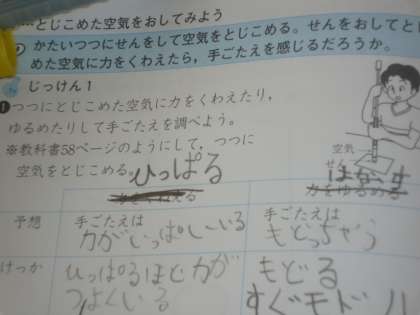 …とじこめた空気をおしてみよう
かたいつつにせんをして空気をとじこめる。せんをおしてと
めた空気に力をくわえたら，手ごたえを感じるだろうか。
じっけん1
❶つつにとじこめた空気に力をくわえたり，
ゆるめたりして手ごたえを調べよう。
※教科書58ページのようにして，つつに
空気をとじこめる。
空気
せん
ひっぱる
はなす
力をゆるめる
予想
手ごたえは
力がいっぱーいいる
手ごたえは
もどっちゃう
けっか
ひっぱるほど力が
つよくいる
もどる
すぐモドル